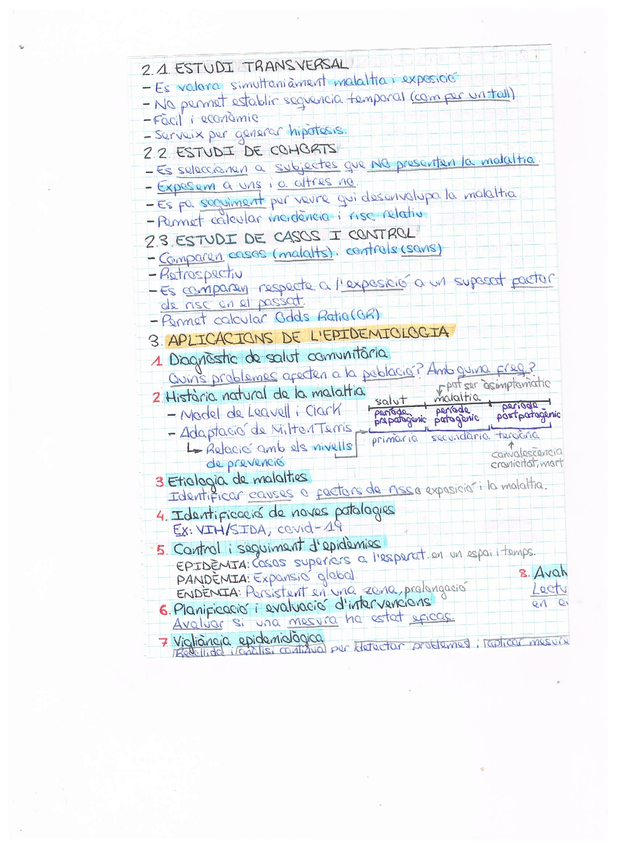 2.1 ESTUDI TRANSVERSAL
- Es valora simultaniàment malaltia i exposició
- No permet establir seqüencia temporal (com per un tall)
- Fàcil i econòmic
- Serveix per generar hipòtesis.
2.2. ESTUDI DE COHORTS
- Es seleccionen a subjectes que NO presenten la malaltia
- Exposem a uns i a altres no
- Es fa seguiment per veure qui desenvolupa la malaltia.
- Permet calcular incidència i risc relatiu
2.3. ESTUDI DE CASOS I CONTROL
- Comparen casos (malalts), controls (sans)
- Retrospectiu
- Es comparen respecte a l'exposició a un suposat factor
de risc en el passat
- Permet calcular Odds Ratio (OR)
3. APLICACIONS DE L'EPIDEMIOLOGIA
1 Diagnòstic de salut comunitària
Quins problemes afecten a la població? Amb quina freq?
2. Història natural de la malaltia
pot ser asimptomàtic
salut malaltia
- Model de Leavell i Clark
període prepatogènic període patogènic període postpatogènic
- Adaptació de Milton Terris
primària secundària terciària
Relació amb els nivells
de prevenció
convalescència
cronicitat, mort
3 Etiologia de malalties
Identificar causes o factors de risc o exposició i la malaltia.
4. Identificació de noves patologies
Ex: VIH/SIDA, covid-19
5. Control i seguiment d'epidèmies
EPIDÈMIA: Casos superiors a l'esperat en un espai i temps.
PANDÈMIA: Expansió global
ENDÈMIA: Persistent en una zona, prolongació
8. Aval
Lectu
en e
6. Planificació i evaluació d'intervencions
Avaluar si una mesura ha estat eficaç
7 Vigilància epidemiològica
Recollida i anàlisi continua per detectar problemes i aplicar mesures